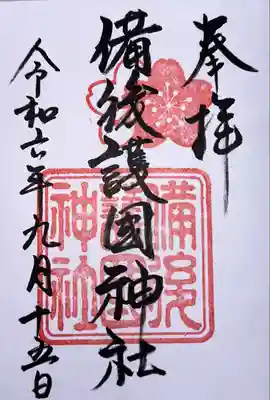 奉拝
備後護國神社
備後護國神社
令和六年九月十五日